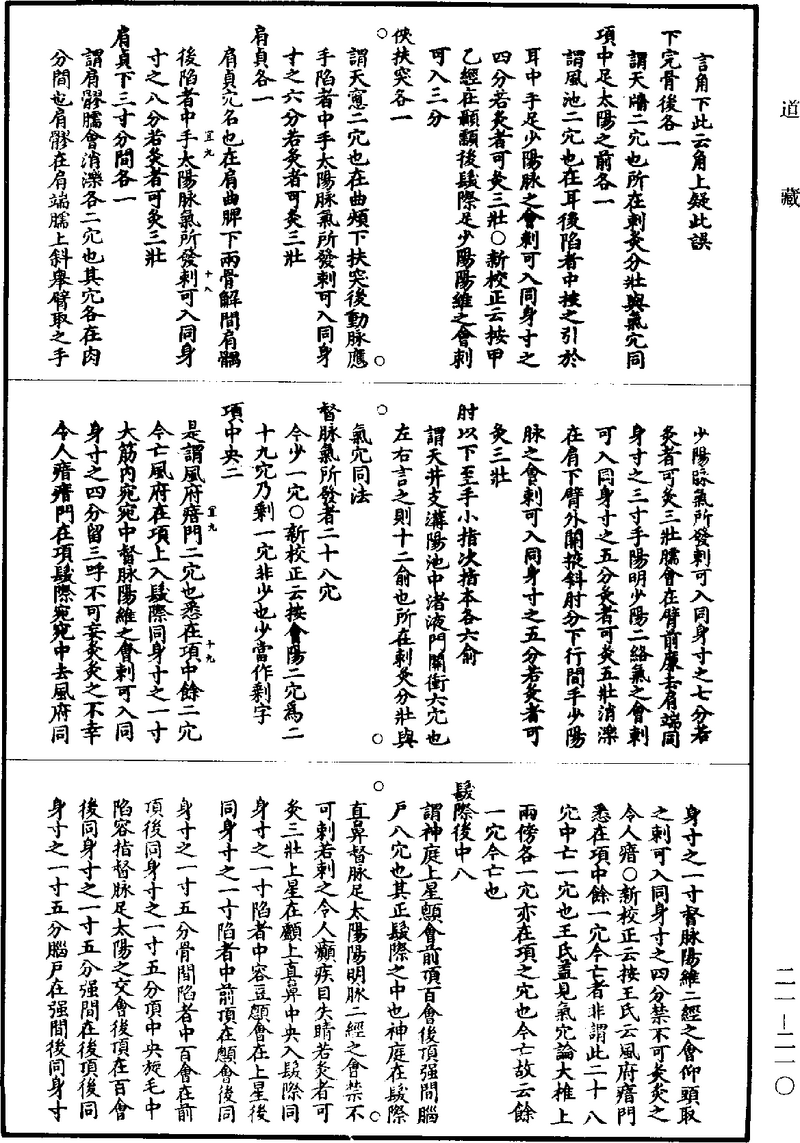 道藏
言角下此云角上疑此誤
下完骨後各一
謂天牖二穴也所在刺灸分壯與氣穴同
項中足太陽之前各一
謂風池二穴也在耳後陷者中按之引於
耳中手足少陽脉之會刺可入同身寸之
四分若灸者可灸三壯○新校正云按甲
乙經在顳顬後髮際足少陽陽維之會刺
可入三分
俠扶突各一
謂天窻二穴也在曲頰下扶突後動脉應
手陷者中手太陽脉氣所發刺可入同身
寸之六分若灸者可灸三壯
肩貞各一
肩貞穴名也在肩曲胛下兩骨解間肩髃
後陷者中手太陽脉氣所發刺可入同身
寸之八分若灸者可灸三壯
肩貞下三寸分間各一
謂肩髎臑會消濼各二穴也其穴各在肉
分間也肩髎在肩端臑上斜舉臂取之手
宜九
十八
少陽脉氣所發刺可入同身寸之七分若
灸者可灸三壯臑會在臂前廉去肩端同
身寸之三寸手陽明少陽二絡氣之會刺
可入同身寸之五分灸者可灸五壯消濼
在肩下臂外關掖斜肘分下行間手少陽
脉之會刺可入同身寸之五分若灸者可
灸三壯
肘以下至手小指次指本各六俞
謂天井支溝陽池中渚液門關衝六穴也
左右言之則十二俞也所在刺灸分壯與
氣穴同法
督脉氣所發者二十八穴
今少一穴○新校正云按會陽二穴爲二
十九穴乃剩一穴非少也少當作剩字
項中央二
是謂風府瘖門二穴也悉在項中餘二穴
今亡風府在項上入髮際同身寸之一寸
大筋内宛宛中督脉陽維之會刺可入同
身寸之四分留三呼不可妄灸灸之不幸
令人瘖瘖門在項髮際宛宛中去風府同
宜九
十九
身寸之一寸督脉陽維二經之會仰頭取
之刺可入同身寸之四分禁不可灸灸之
令人瘖○新校正云按王氏云風府瘖門
悉在項中餘一穴今亡者非謂此二十八
穴中亡一穴也王氏蓋見氣穴論大椎上
兩傍各一穴亦在項之穴也今亡故云餘
一穴今亡也
髮際後中八
謂神庭上星顖會前頂百會後頂强間腦
戶八穴也其正髮際之中也神庭在髮際
直鼻督脉足太陽陽明脉二經之會禁不
可刺若刺之令人癲疾目失睛若灸者可
灸三壯上星在顱上直鼻中央入髮際同
身寸之一寸陷者中容豆顖會在上星後
同身寸之一寸陷者中前頂在顖會後同
身寸之一寸五分骨間陷者中百會在前
頂後同身寸之一寸五分頂中央旋毛中
陷容指督脉足太陽之交會後頂在百會
後同身寸之一寸五分强間在後頂後同
身寸之一寸五分腦戶在强間後同身寸
二一—二一○